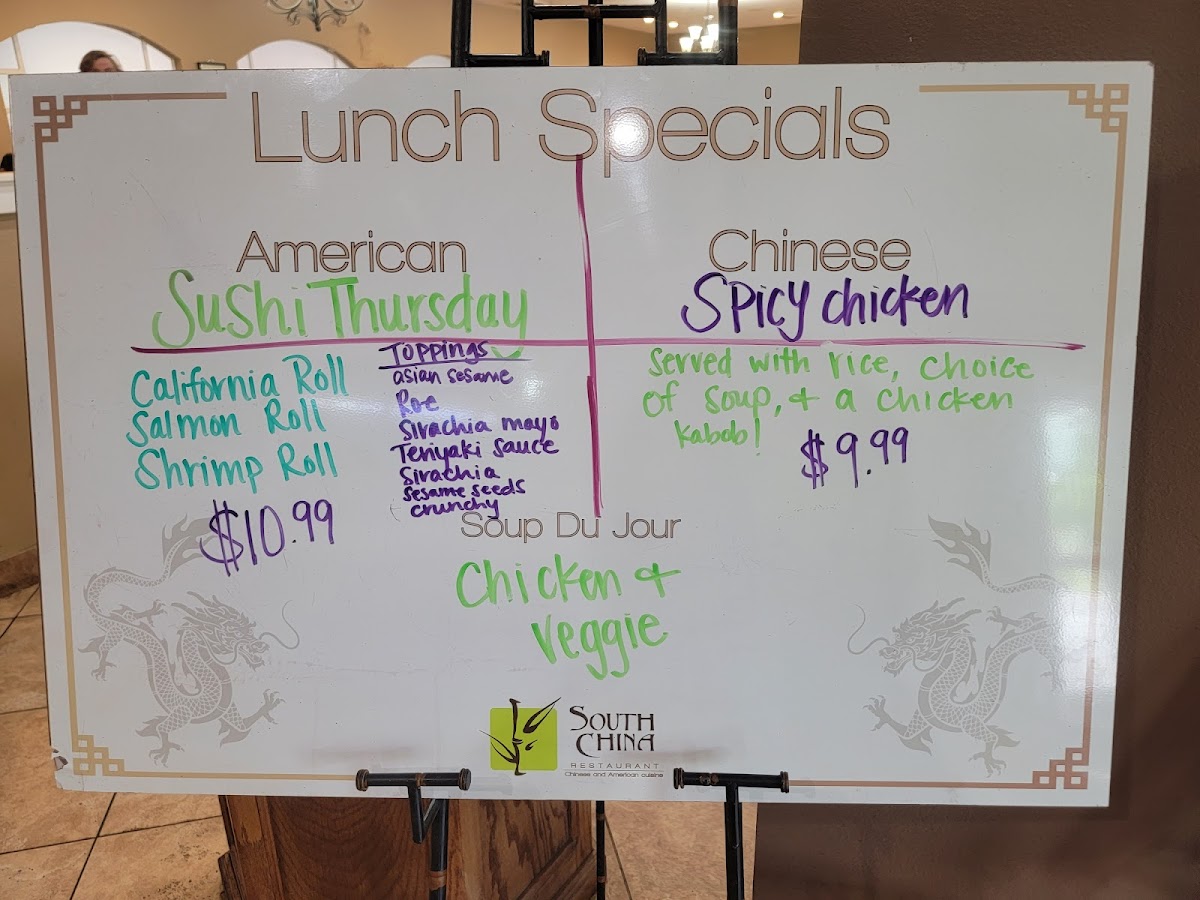 Lunch Specials
American
Sushi Thursday
California Roll
Salmon Roll
Shrimp Roll
$10.99
Toppings
asian sesame
Roe
Sirachia mayo
Teriyaki Sauce
Sirachia
sesame seeds
crunchy
Chinese
Spicy chicken
Served with rice, choice
of soup, & a chicken
kabob!
$9.99
Soup Du Jour
Chicken &
veggie
SOUTH
CHINA
RESTAURANT
Chinese and American cuisine